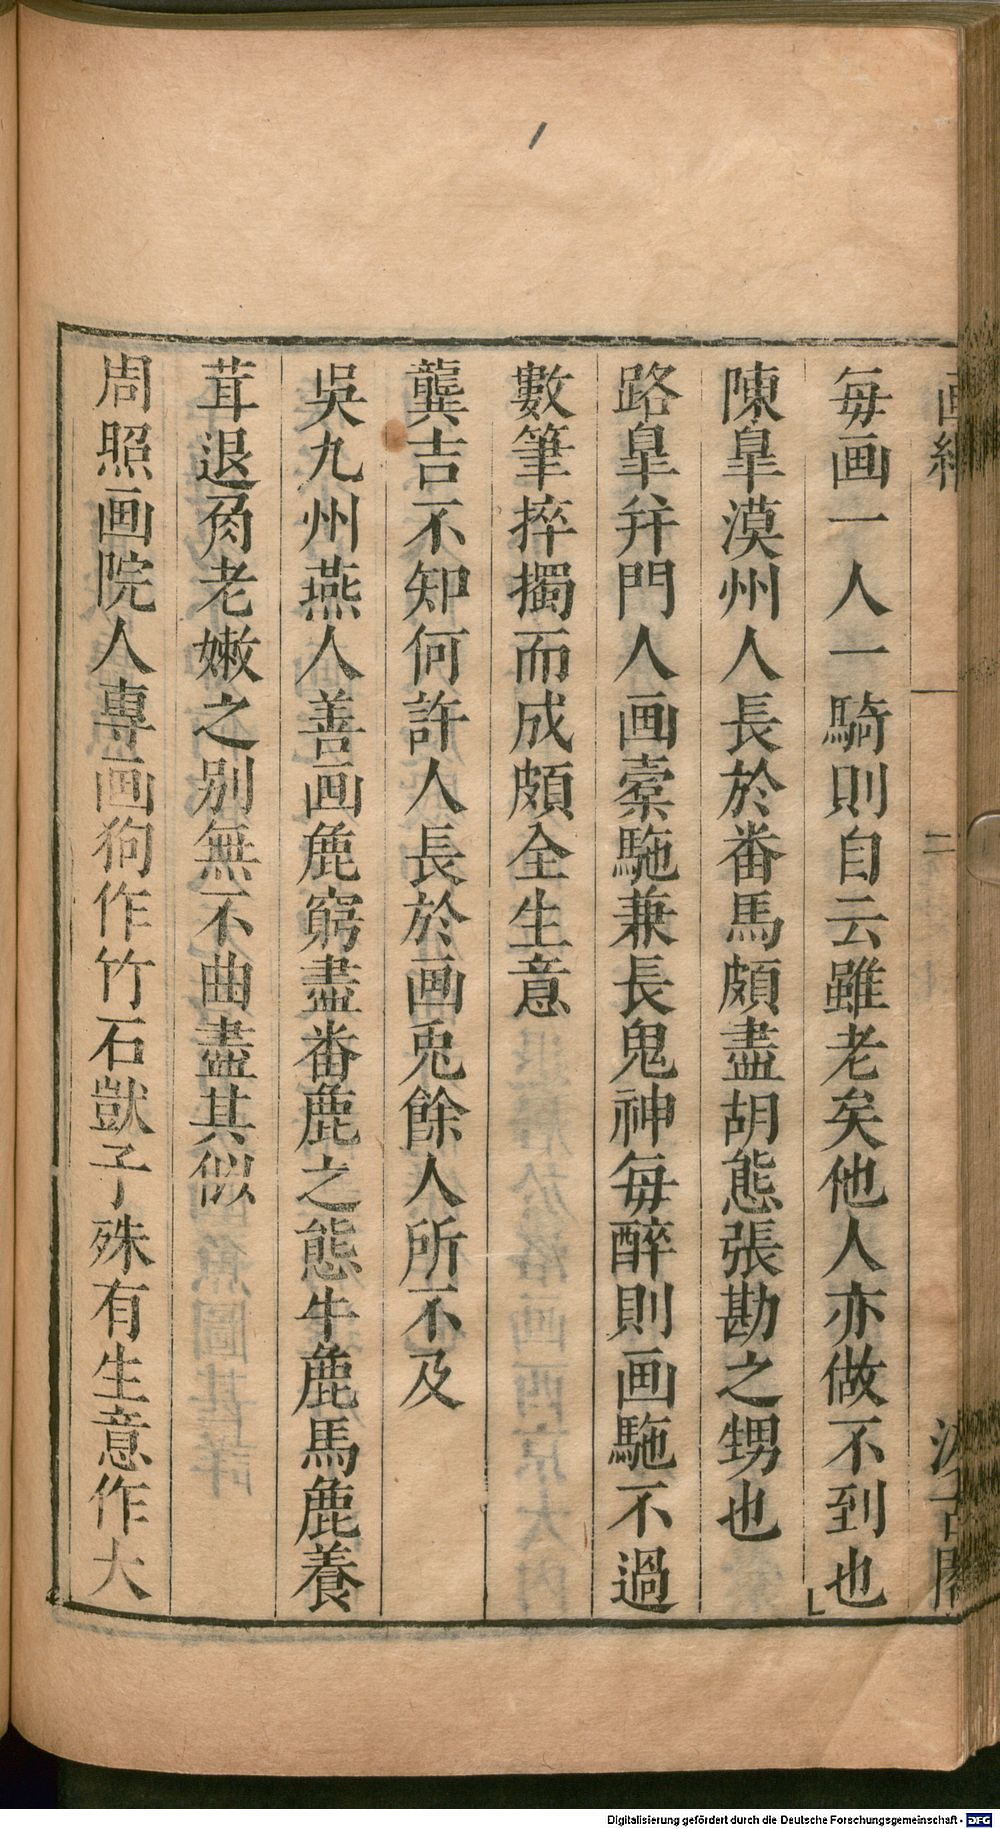 毎画一人一騎則自云雖老矣他人亦做不到也
陳皐漠州人長於番馬頗盡胡態張勘之甥也
路皐幷門人画槖駞兼長鬼神毎醉則画駞不過
數筆捽擉而成頗全生意
龔吉不知何許人長於画兎餘人所不及
吳九州燕人善画鹿窮盡番鹿之態牛鹿馬鹿養
茸退角老嫩之别無不曲盡其似
周照画院人專画狗作竹石獃子殊有生意作大
二
Digitalisierung gefördert durch die Deutsche Forschungsgemeinschaft - DFG